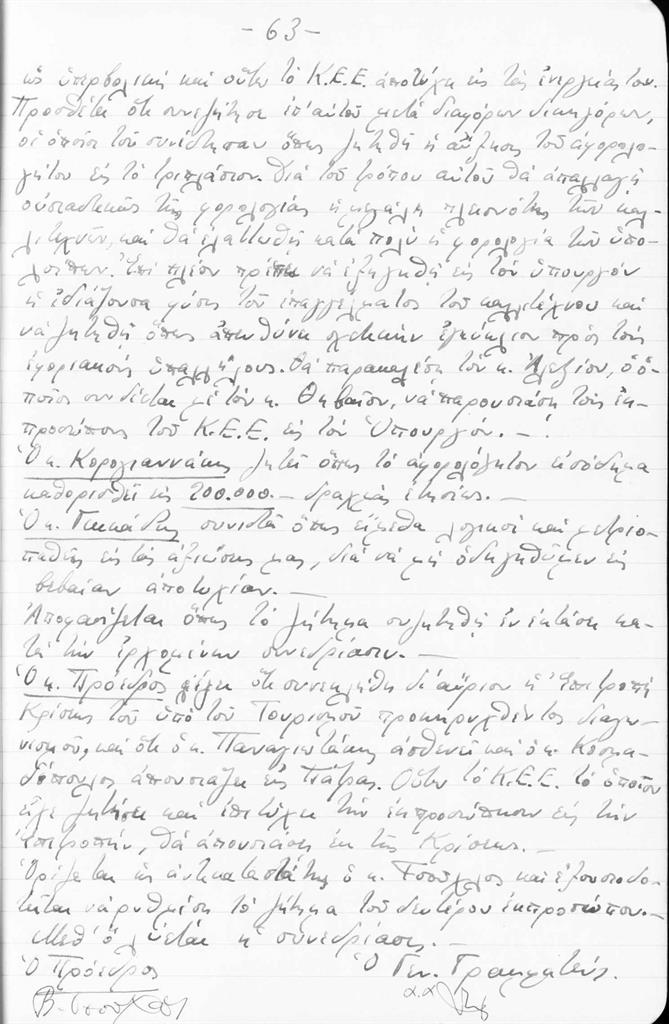 - 63 -
ὡς ὑπερβολική καί οὕτω τό Κ.Ε.Ε. ἀποτύχῃ εἰς τάς ἐνεργείας του.
Προσθέτει ὅτι συνεζήτησε ἐπ' αὐτοῦ μετά διαφόρων δικηγόρων,
οἱ ὁποῖοι τοῦ συνέστησαν ὅπως ζητηθῇ ἡ αὔξησις τοῦ ἀφορολο-
γήτου εἰς τό τριπλάσιον. Διά τοῦ τρόπου αὐτοῦ θά ἀπαλλαγῇ
οὐσιαστικῶς τῆς φορολογίας ἡ μεγάλη πλειονότης τῶν καλ-
λιτεχνῶν, καί θά ἐλαττωθῇ κατά πολύ ἡ φορολογία τῶν ὑπο-
λοίπων. Ἐπί πλέον πρέπει νά ἐξηγηθῇ εἰς τόν ὑπουργόν
ἡ ἰδιάζουσα φύσις τοῦ ἐπαγγέλματος τοῦ καλλιτέχνου καί
νά ζητηθῇ ὅπως ἀπευθύνῃ σχετικήν ἐγκύκλιον πρός τούς
ἐφοριακούς ὑπαλλήλους. Θά παρακαλέσῃ τόν κ. Ἀλεξίου, ὁ ὁ-
ποῖος συνδέεται μέ τόν κ. Θηβαῖον, νά παρουσιάσῃ τούς ἐκ-
προσώπους τοῦ Κ.Ε.Ε. εἰς τόν Ὑπουργόν. -
Ὁ κ. Κορογιαννάκης ζητεῖ ὅπως τό ἀφορολόγητον εἰσόδημα
καθορισθεῖ εἰς 200.000.- δραχμάς ἐτησίως. -
Ὁ κ. συνιστᾶ ὅπως εἴμεθα λογικοί καί μετριο-
παθεῖς εἰς τάς ἀξιώσεις μας, διά νά μή ὁδηγηθῶμεν εἰς
βεβαίαν ἀποτυχίαν. -
Ἀποφασίζεται ὅπως τό ζήτημα συζητηθῇ ἐν ἐκτάσει κα-
τά τήν ἐρχομένην συνεδρίασιν. -
Ὁ κ. Πρόεδρος λέγει ὅτι συνεκλήθη δι' αὔριον ἡ Ἐπιτροπή
Κρίσεως τοῦ ὑπό τοῦ Τουρισμοῦ προκηρυχθέντος διαγω-
νισμοῦ, καί ὅτι ὁ κ. Παναγιωτάκης ἀσθενεῖ καί ὁ κ. Κοσμα-
δόπουλος ἀπουσιάζει εἰς Πάτρας. Οὕτω τό Κ.Ε.Ε. τό ὁποῖον
εἶχε ζητήσει καί ἐπιτύχει τήν ἐκπροσώπησιν εἰς τήν
ἐπιτροπήν, θά ἀπουσιάσῃ ἐκ τῆς Κρίσεως. -
Ὁρίζεται ὡς ἀντικαταστάτης ὁ κ. Τσοῦχλος καί ἐξουσιοδο-
τεῖται νά ρυθμίσῃ τό ζήτημα τοῦ δευτέρου ἐκπροσώπου. -
Μεθ' ὅ λύεται ἡ συνεδρίασις. -
Ὁ Πρόεδρος Ὁ Γεν. Γραμματεύς.